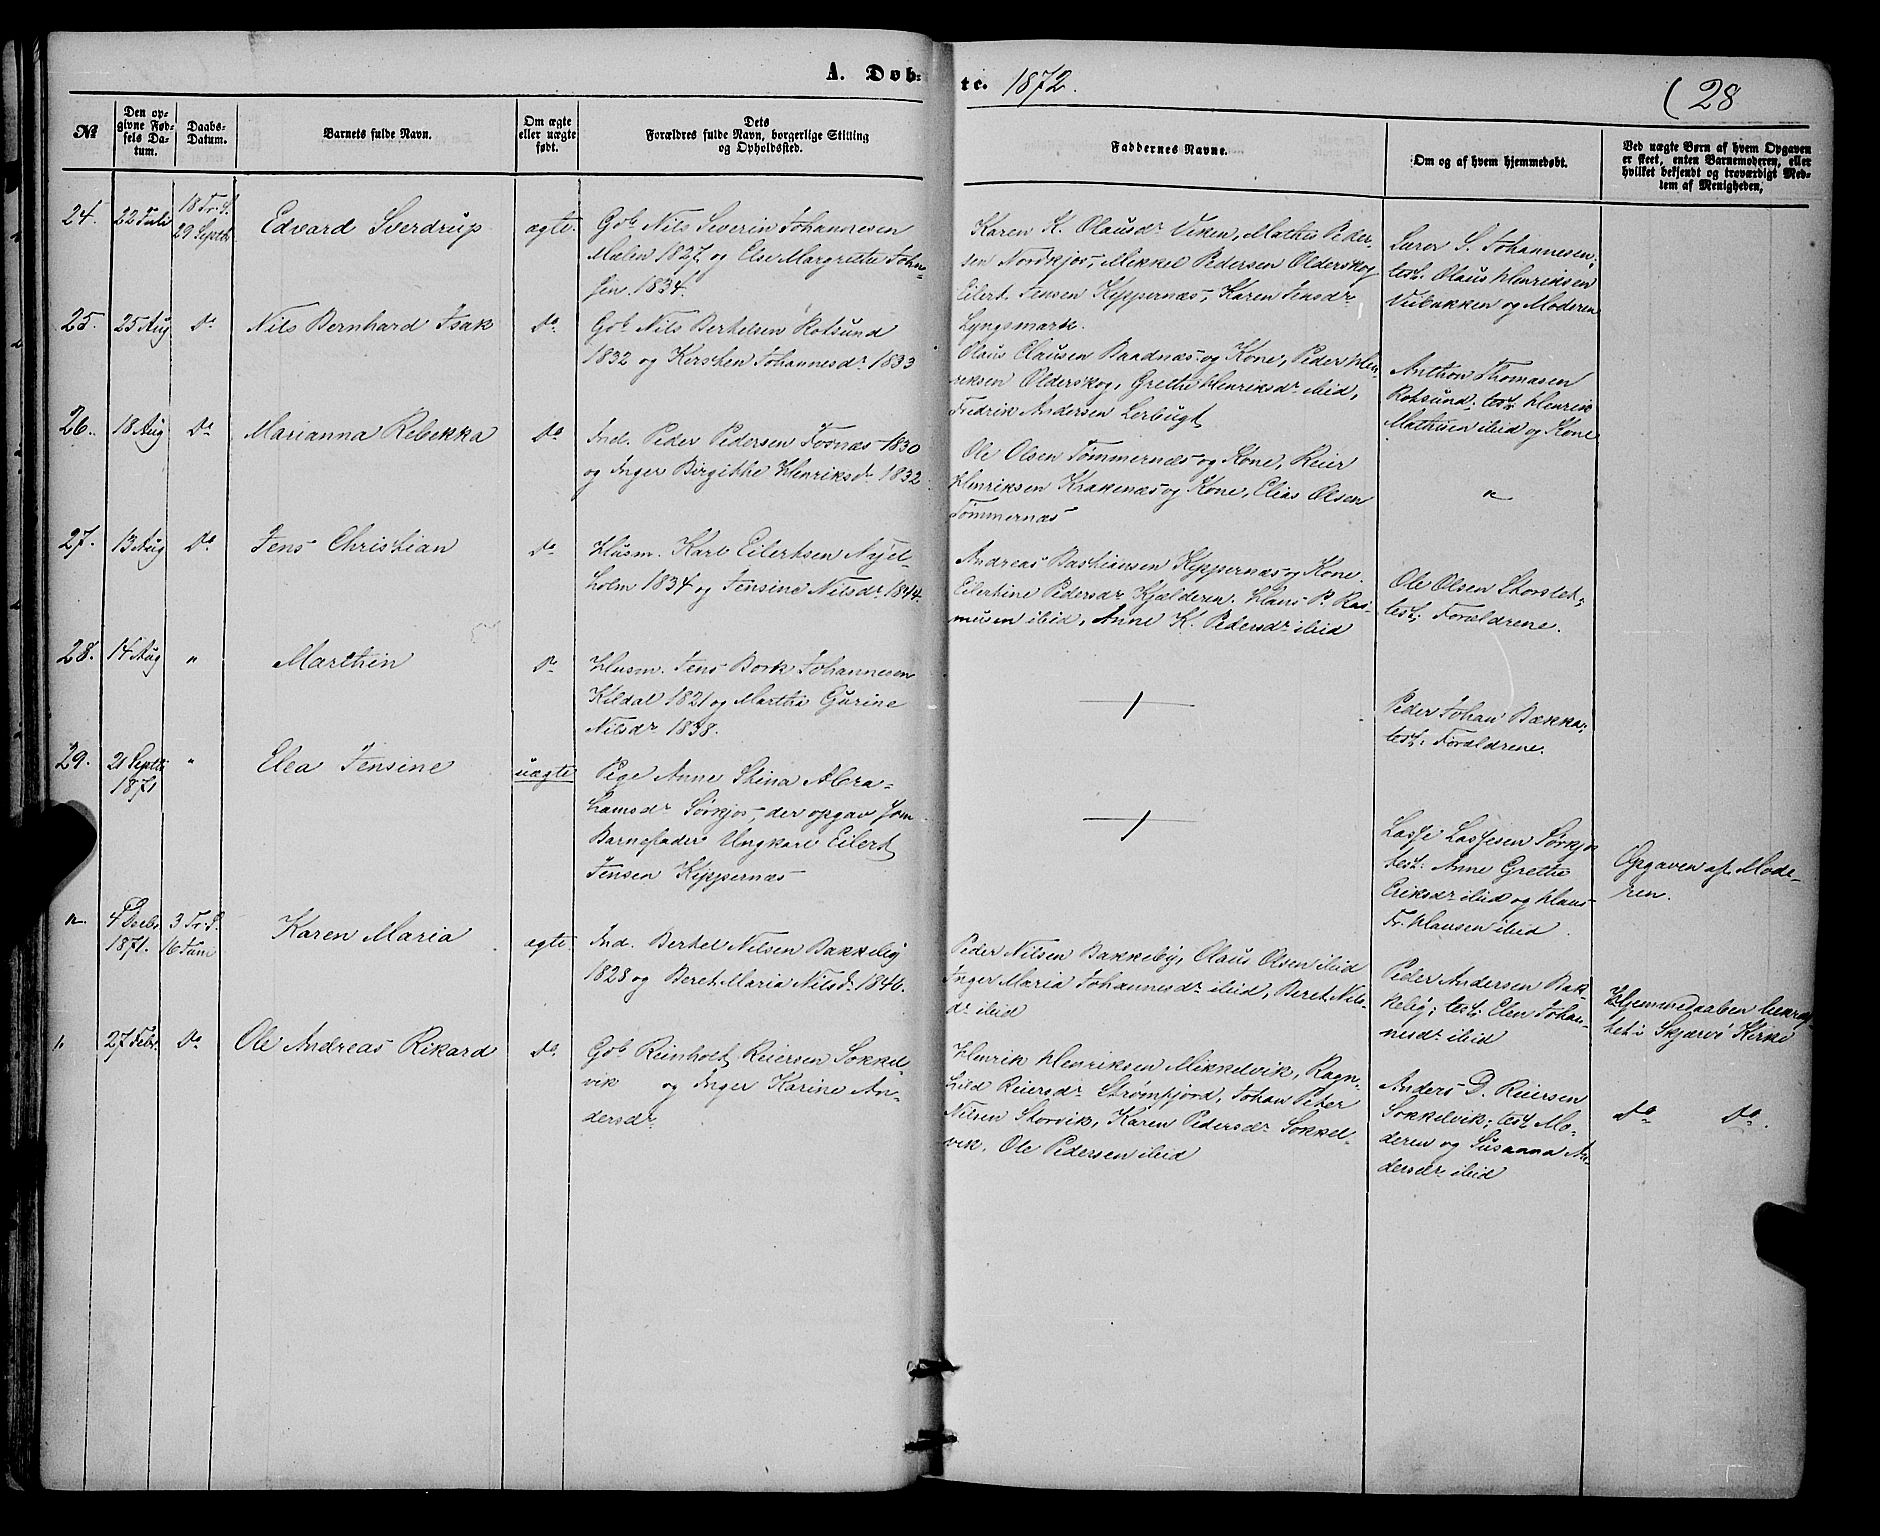 A. Døb-
te. 1872.
(28
No
Den op-
givne Fød-
sels Da-
tum.
Daabs-
Datum.
Barnets fulde Navn.
Om ægte
eller uægte
født.
Dets
Forældres fulde Navn, borgerlige Stilling
og Opholdssted.
Faddernes Navne.
Om og af hvem hjemmedøbt.
Ved uægte Børn af hvem Opgaven
er skeet, enten Barnemoderen, eller
hvilket bekjendt og troværdigt Med-
lem af Menigheden.
24.
22 Juli
18 Tr. S.
29 Septbr
Edvard Sverdrup
ægte.
Gbr Nils Severin Johannesen
Malen 1827 og Else Margrethe John-
sen. 1834.
Karen K. Olausdr Viken, Mathis Peder-
sen Nordkjos, Mikkel Pedersen Olderskog
Eilert Jensen Kippernæs, Karen Jensdr
Lyngsmark.
S. Johannesen;
test. Olaus Henriksen
og Moderen
25.
25 Aug
Do
Nils Bernhard Isak
Do
Gbr Nils Berthelsen Rotsund
1832 og Kirsten Johannesdr 1833
Olaus Olausen Baadnæs og Kone, Peder Hen-
riksen Olderskog, Grethe Henriksdr ibid,
Fredrik Andersen Lerbugt
Anthon Thomasen
Rotsund; test. Henrik
Mathisen ibid og Kone
26.
18 Aug
Do
Marianna Rebekka
Do
Ind. Peder Pedersen Fosnæs 1830
og Inger Birgithe Henriksdr 1832
Ole Olsen Tømmernæs og Kone, Reier
Henriksen Krakenæs og Kone, Elias Olsen
Tømmernæs
"
27.
13 Aug
Do
Jens Christian
Do
Husm. Karl Eilertsen Nyjel-
holm 1834 og Jensine Nilsdr 1844.
Andreas Bastiansen Kippernæs og Kone.
Eilertine Pedersdr Kjælderen. Hans P. Ras-
musen ibid, Anne K. Pedersdr ibid
Ole Olsen Storslet;
test; Forældrene.
28.
14 Aug
"
Marthin
Do
Husm. Jens Bork Johannesen
Kildal 1821 og Martha Gurine
Nilsdr 1838.
Peder Johan Bækka;
test: Forældrene.
29.
21 Septbr
1871
"
Elea Jensine
uægte
Pige Anne Stina Abra-
hamsdr Sørkjos, der opgav som
Barnefader Ungkarl Eilert
Jensen Kippernæs
Lasse Lassesen Sørkjos
test: Anne Grethe
Eriksdr ibid og Hans
Fr. Hansen ibid
Opgaven af Mode-
ren.
"
4 Decbr
1871.
3 Tr. S.
16 Juni
Karen Maria
ægte
Ind. Berthel Nilsen Bakkeby
1828 og Beret Maria Nilsdr 1846.
Peder Nilsen Bakkeby, Olaus Olsen ibid
Inger Maria Johannesdr ibid, Beret Nils-
dr ibid
Peder Andersen Bak-
keby; test; Elen Johan-
nesdr ibid
Hjemmedaaben
i Skjærvø Kirke
"
27 Febr.
Do
Ole Andreas Rikard
Do
Gbr Reinholt Reiersen Sokkel-
vik og Inger Karine An-
dersdr
Henrik Henriksen Mikkelvik, Ragn-
hild Reiersdr Strømfjord, Johan Peter
Nilsen Storvik, Karen Pedersdr Sokkel-
vik, Ole Pedersen ibid
Anders D. Reiersen
Sokkelvik; test. Mo-
deren og Susanna An-
dersdr ibid
Do Do.